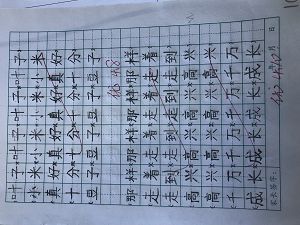 叶子叶子叶子叶子
小米小米小米小米
真好真好真好真好
十分十分十分十分
豆子豆子豆子豆子
那样那样那样那样
走着走着走着走着
走到走到走到走到
高兴高兴高兴高兴
高兴高兴高兴高兴
千万千万千万千万
成长成长成长成长
家长签字: 月 日